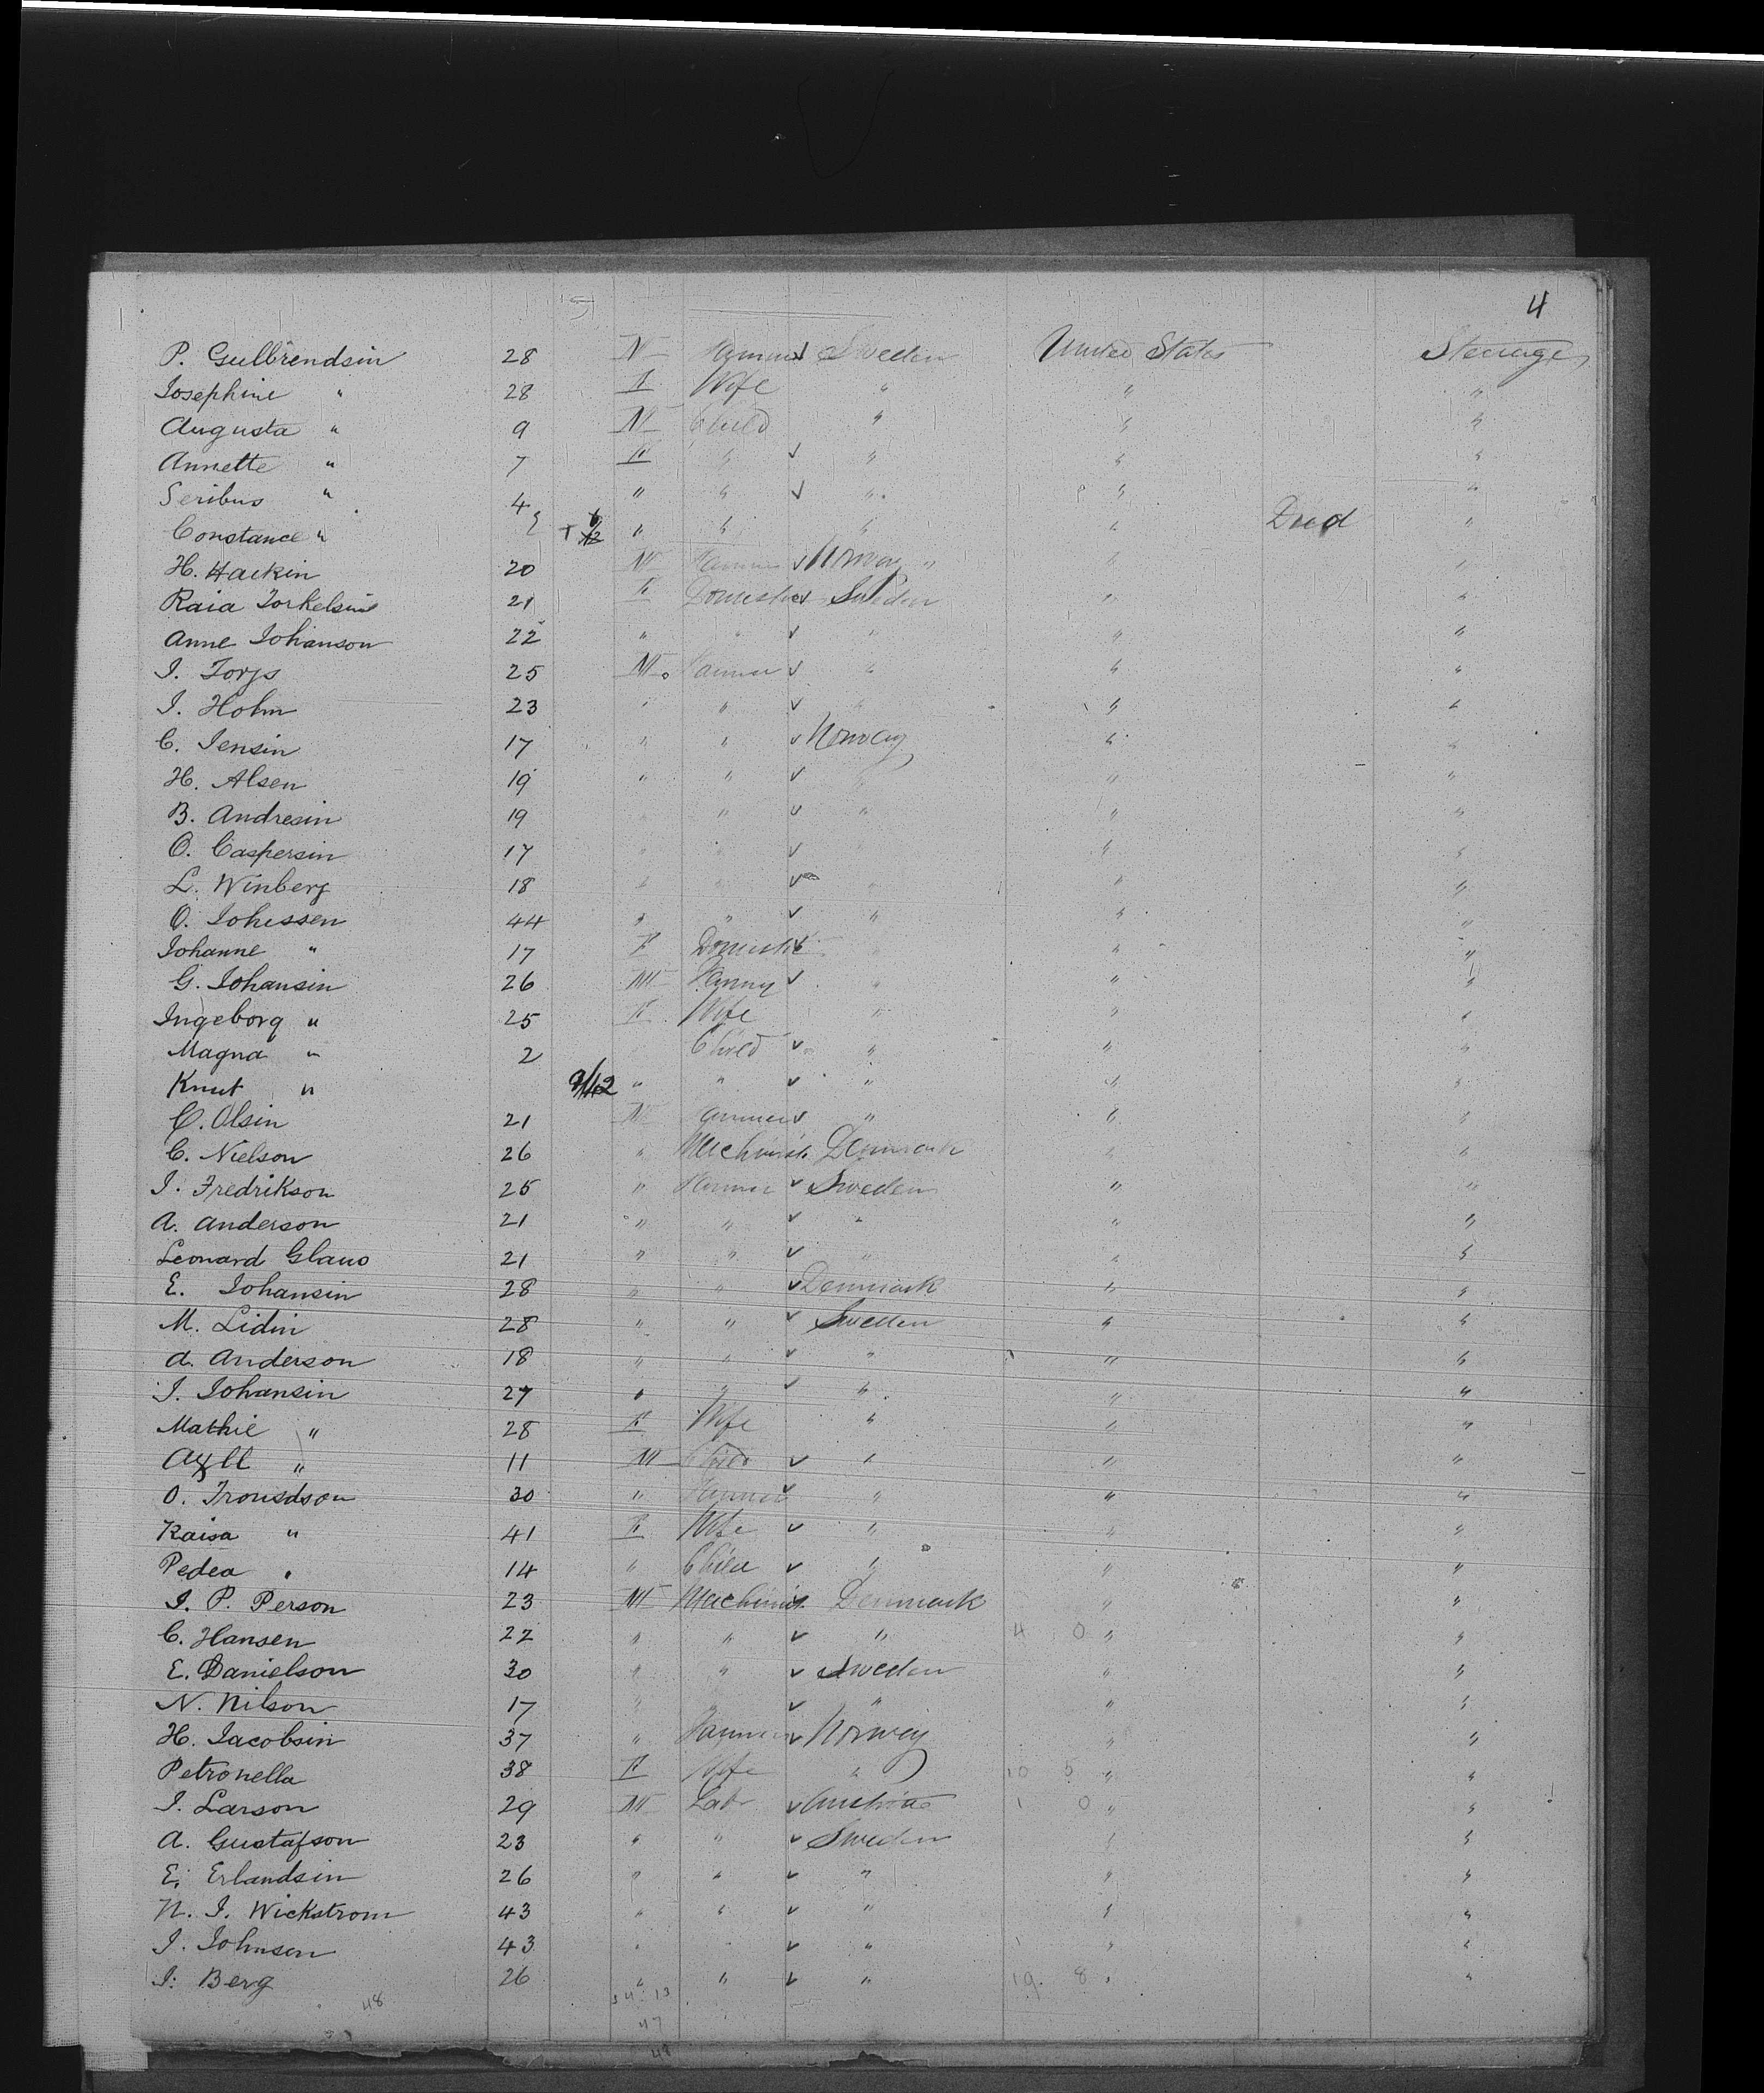 4
P. Gulbrendsin 28 M Farmer ✓ Sweden United States Steerage
Josephine " 28 F Wife " " "
Augusta " 9 M Child " " "
Annette " 7 F " ✓ " " "
Seribus " 4 " " ✓ " " "
Constance " " " " " Died "
H. Haekin 20 M Farmer ✓ Norway " " "
Raia Torkelsin 21 F Domestic ✓ Sweden " "
Anne Johanson 22 " " ✓ " " "
I. Torjs 25 M Farmer ✓ " " "
I. Holm 23 " " ✓ " " "
C. Jensin 17 " " ✓ Norway " "
H. Alsen 19 " " ✓ " " "
B. Andresin 19 " " ✓ " " "
O. Caspersin 17 " " ✓ " " "
L. Winberg 18 " " ✓ " " "
O. Johessen 44 " " ✓ " " "
Johanne " 17 F Domestic ✓ " " "
G. Johansin 26 M ✓ " " "
Ingeborg " 25 F Wife " " "
Magna " 2 Child ✓ " " "
Knut " 9/12 " " ✓ " " "
C. Olsin 21 M Farmer ✓ " " "
C. Nielson 26 " Machinist Denmark " "
I. Fredrikson 25 " Farmer ✓ Sweden " "
A. Anderson 21 " " ✓ " " "
Leonard Glauo 21 " " ✓ " " "
E. Johansin 28 " " ✓ Denmark " "
M. Lidin 28 " " ✓ Sweden " "
A. Anderson 18 " " ✓ " " "
I. Johansin 27 " " ✓ " " "
Mathie " 28 F Wife " " "
Axll " 11 M Child ✓ " " "
O. Tronsdson 30 " Farmer ✓ " " "
Kaisa " 41 F Wife ✓ " " "
Pedea " 14 " Child ✓ " " "
I. P. Person 23 M Machinist ✓ Denmark " "
C. Hansen 22 " " ✓ " 4 0 " "
E. Danielson 30 " " ✓ Sweden " "
N. Nilson 17 " " ✓ " " "
H. Jacobsin 37 " Farmer ✓ Norway " "
Petronella 38 F Wife " 10 5 " "
I. Larson 29 M Labr ✓ 1 0 " "
A. Gustafson 23 " " ✓ Sweden " "
E. Erlandsin 26 " " ✓ " " "
N. I. Wickstrom 43 " " ✓ " " "
I. Johnson 43 " " ✓ " " "
I. Berg 26 " " ✓ " 19 8 " "
48 34 13
47
48